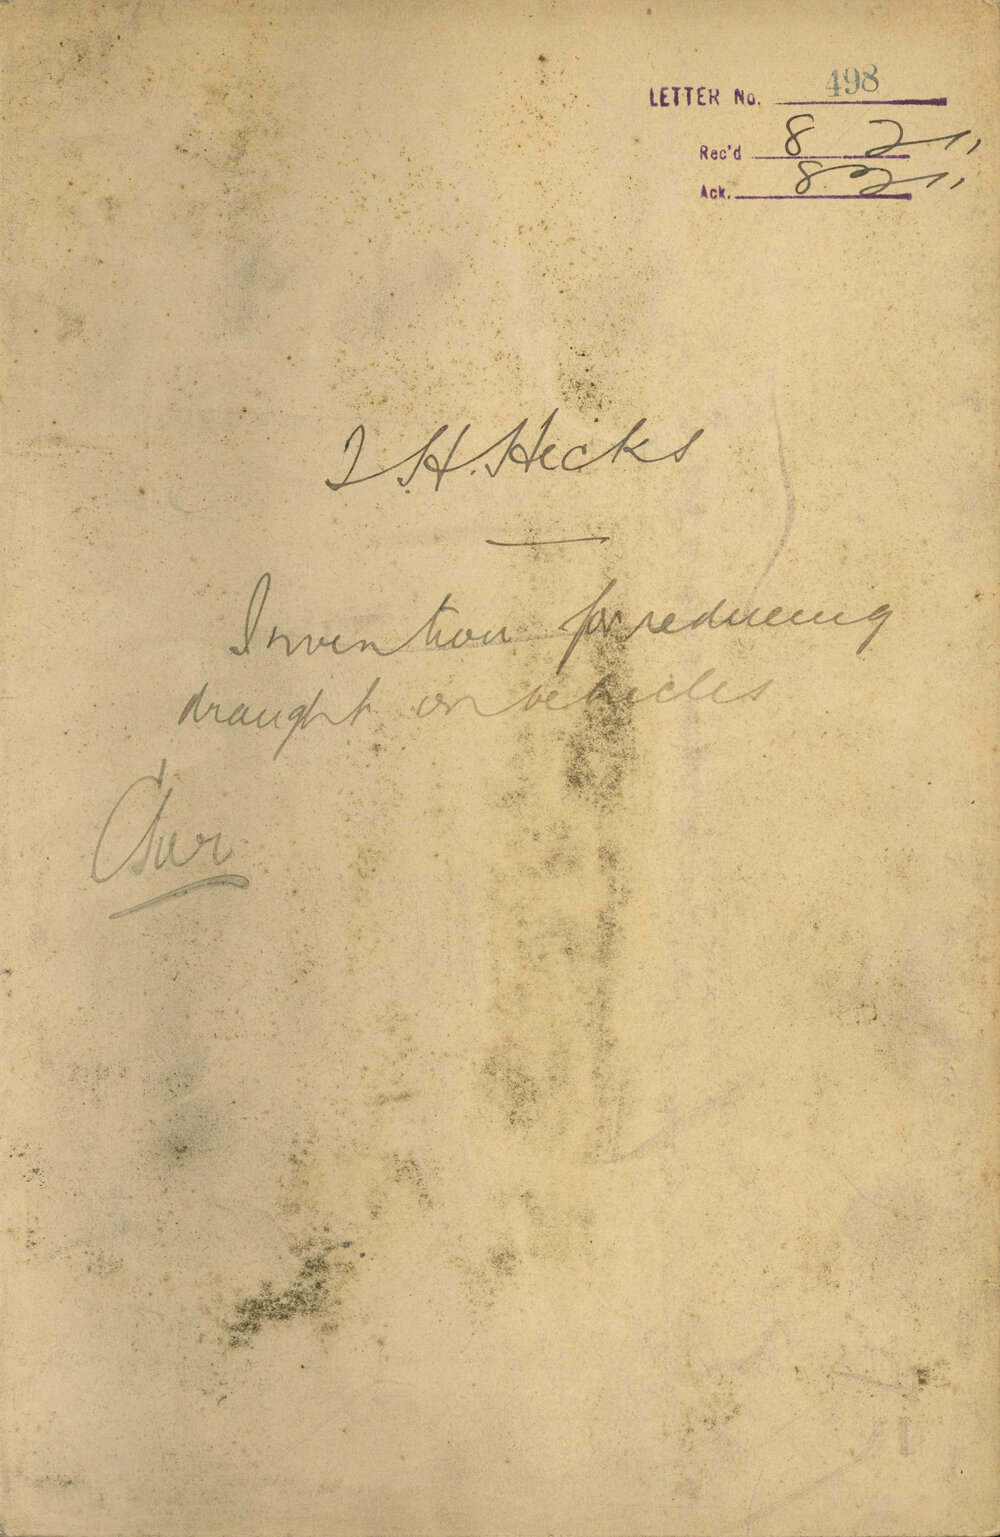 LETTER No. 498
Rec'd 8 2 11
Ack. 8 2 11
H. Hicks
Invention for reducing
draught on vehicles